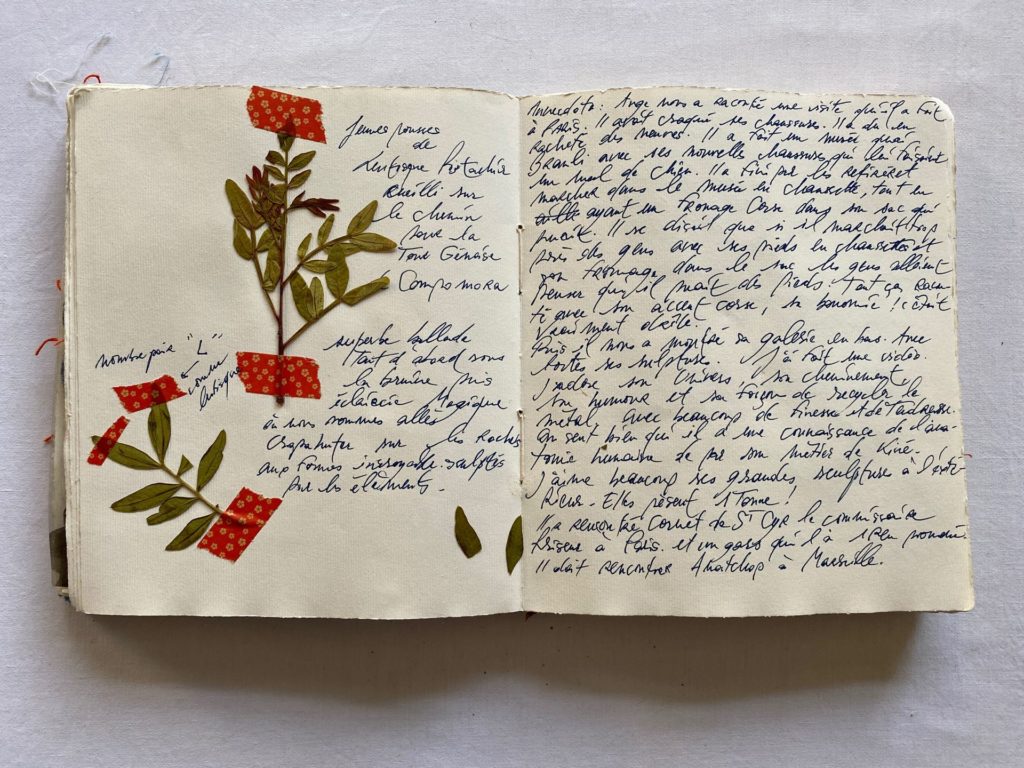 jeunes pousses
de
lentisque Pistachier
cueilli sur
le chemin
pour la
Tour Génoise
Campomora
nombre pair "L"
comme
lentisque
superbe ballade
tout d'abord sous
la brume puis
éclaircie Magique
où nous sommes allés
crapahuter sur les Roches
aux formes incroyable. sculptés
par les éléments.
Anecdote: Ange nous a raconté une visite qu'il a fait
à PARIS. Il avait craqué ses chaussures. Il a du en
racheté des neuves. Il a fait un musée quai
Branli avec ses nouvelles chaussures qui lui faisaient
un mal de chien. Il a fini par les retirer et
marcher dans le musée en chaussette, tout en
ayant un fromage Corse dans son sac qui
puait. Il se disait que si il marchait trop
près des gens avec ses pieds en chaussettes et
son fromage dans le sac les gens allaient
penser qu'il puait des pieds. Tout ça racon-
té avec son accent corse, sa bonomie! c'était
vraiment drôle.
Puis il nous a montré sa galerie en bas. Avec
toutes ses sculptures. J'ai fait une vidéo.
J'adore son univers, son cheminement,
son humour et sa façon de recycler le
métal, avec beaucoup de finesse et de tadresse.
On sent bien qu'il a une connaissance de l'ana-
tomie humaine de par son métier de Kiné.
j'aime beaucoup ses grandes sculpture à l'exté-
rieur. Elles pèsent 1 tonne!
Il a rencontré Cornet de St Cyr le commissaire
priseur à Paris. et un gars qui l'a
Il doit rencontrer à Marseille.